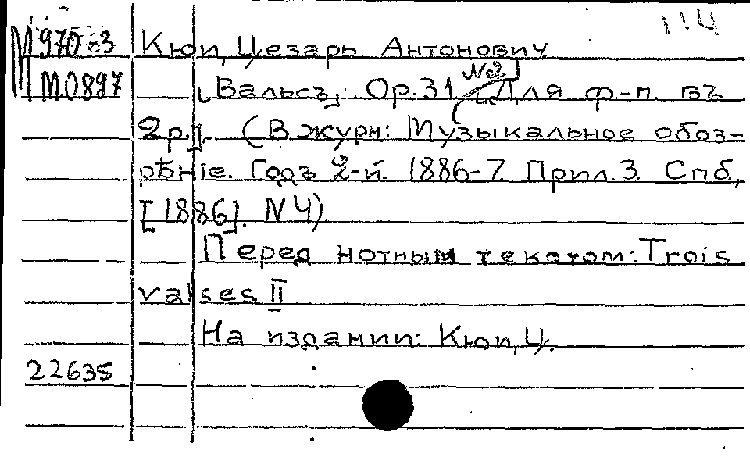 М 970-3 Кюи, Цезарь Антонович
М0897 [Вальсъ]. Ор. 31 №2 [Для ф-п. въ
2 р.]. (В журн: Музыкальное обоз-
рѣніе. Годъ 2-й. 1886-7. Прил. 3. Спб,
[1886]. N4)
Перед нотным текстом: Trois
valses II
На издании: Кюи, Ц.
22635